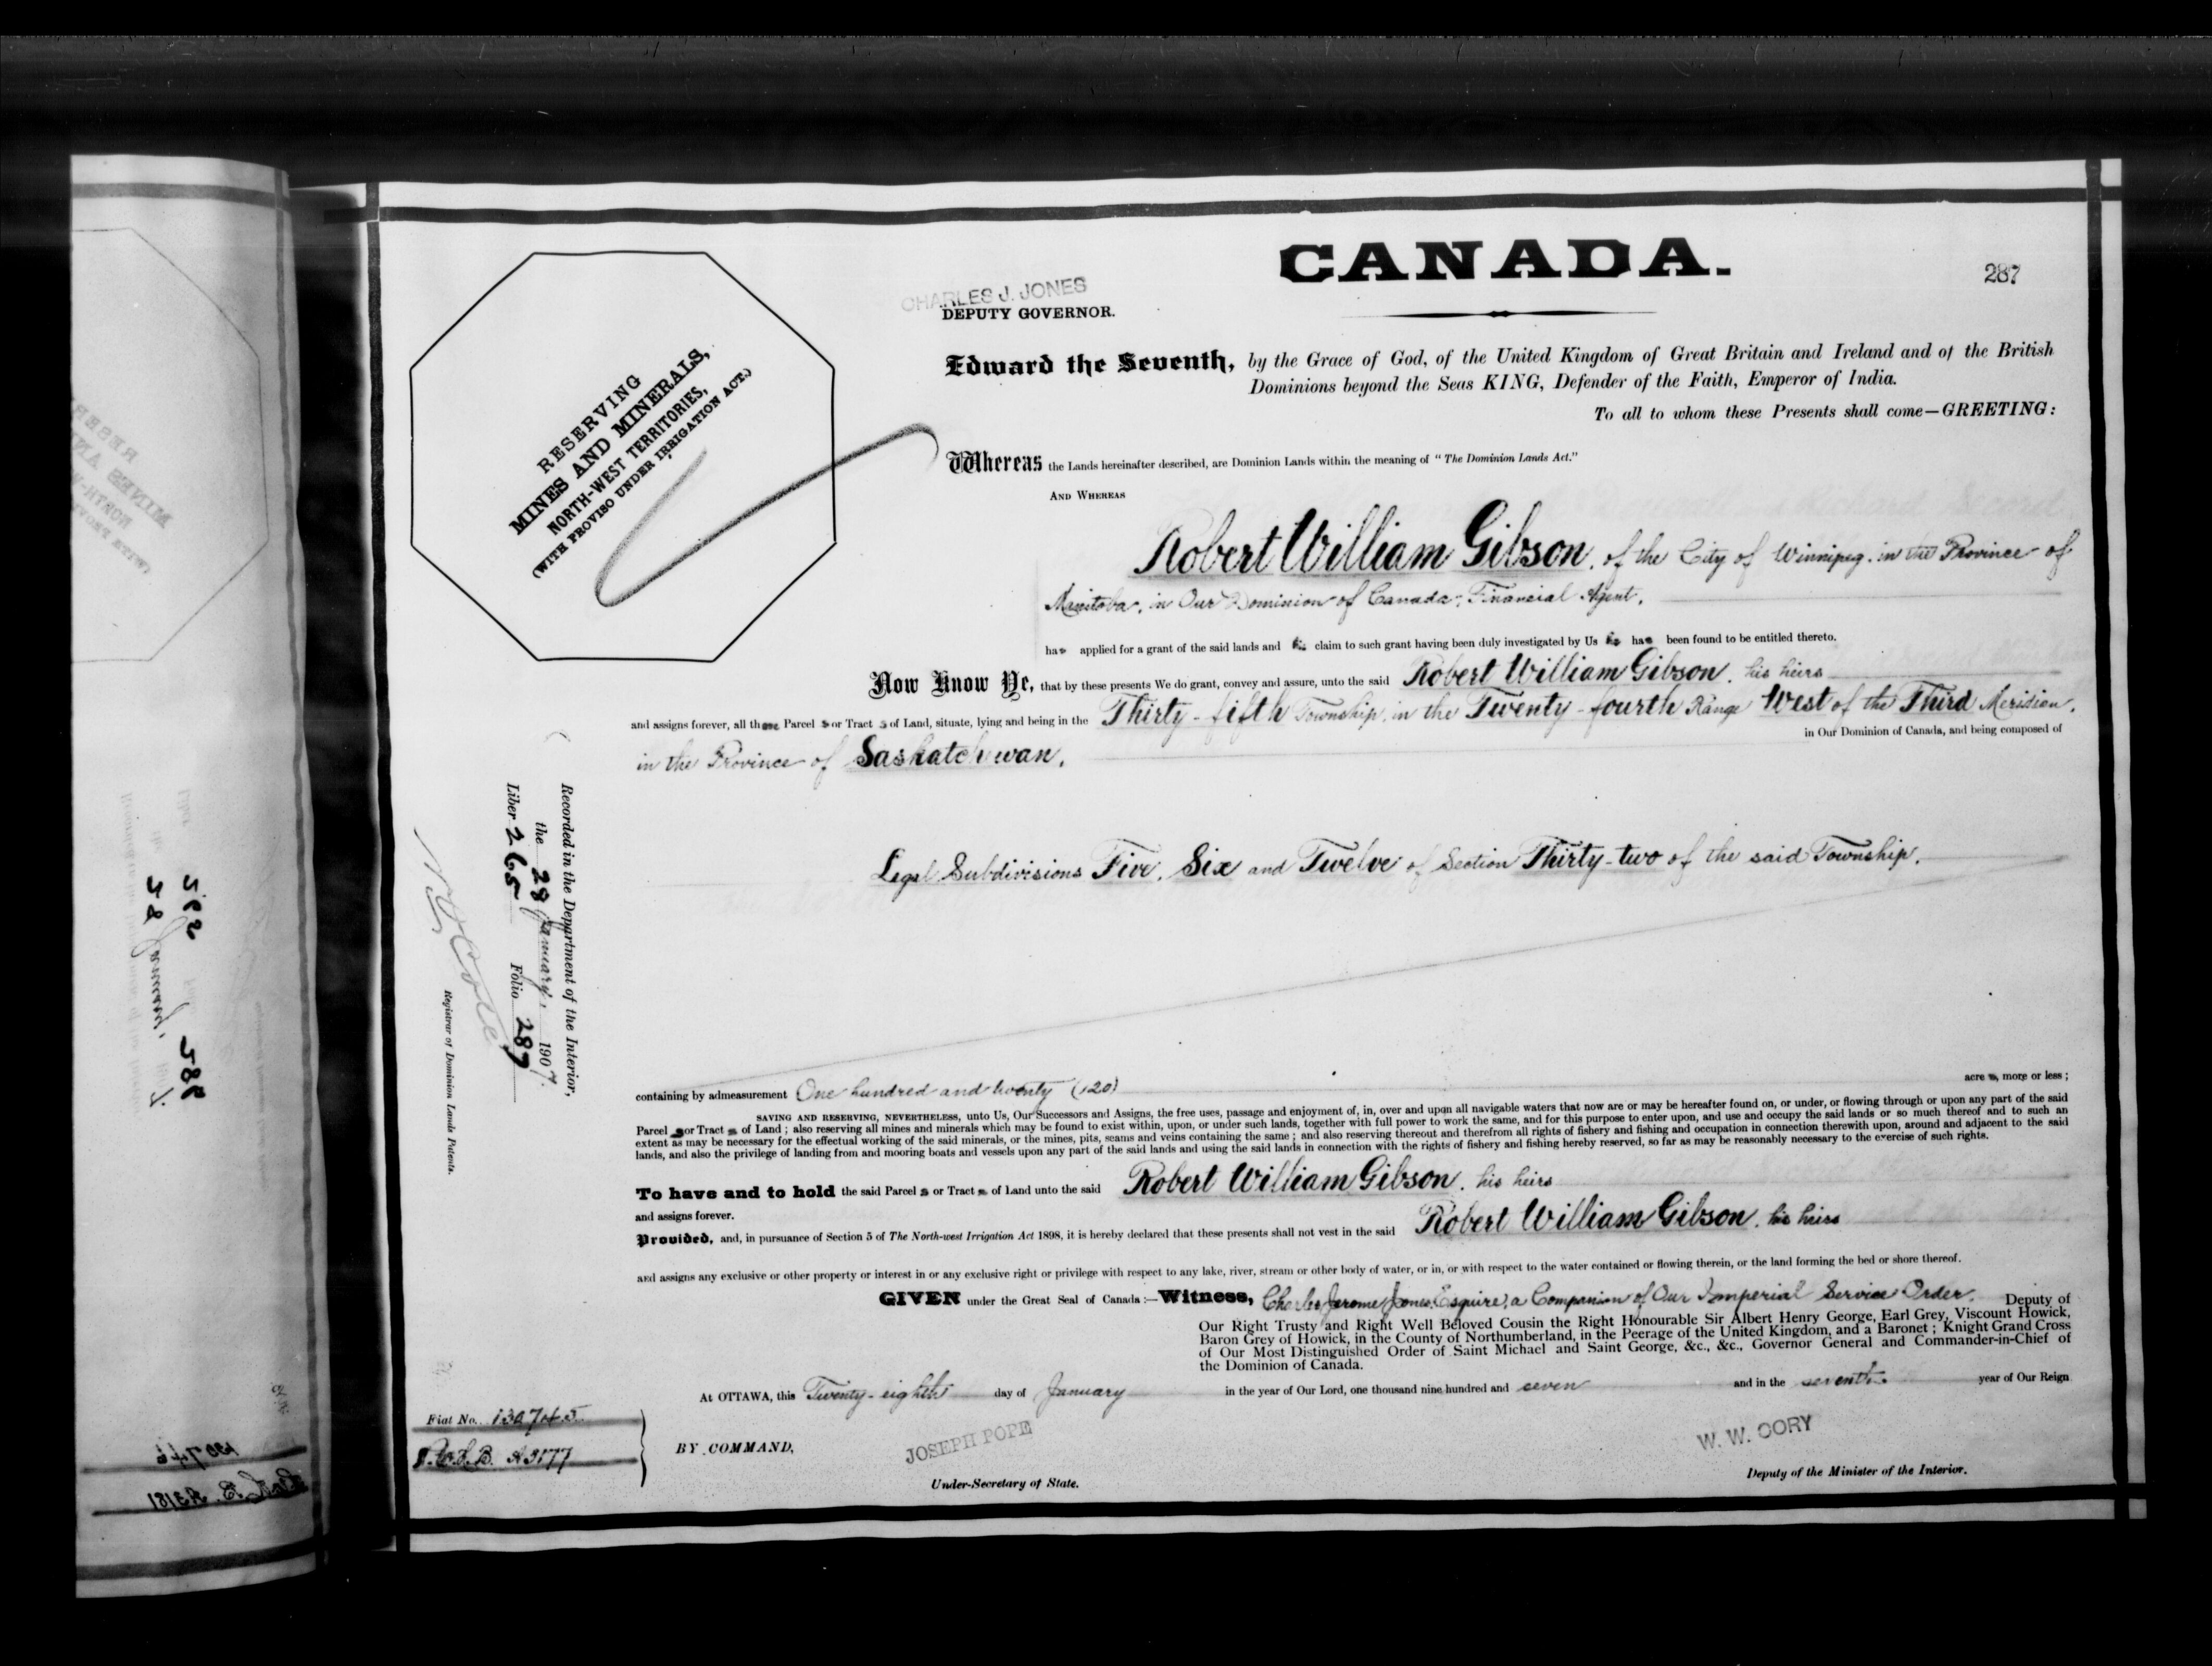 CANADA.
287
CHARLES J. JONES
DEPUTY GOVERNOR.
RESERVING
MINES AND MINERALS,
NORTH-WEST TERRITORIES,
(WITH PROVISO UNDER IRRIGATION ACT.)
Edward the Seventh, by the Grace of God, of the United Kingdom of Great Britain and Ireland and of the British
Dominions beyond the Seas KING, Defender of the Faith, Emperor of India.
To all to whom these Presents shall come—GREETING:
Whereas the Lands hereinafter described, are Dominion Lands within the meaning of "The Dominion Lands Act."
AND WHEREAS
Robert William Gibson, of the City of Winnipeg, in the Province of
Manitoba, in Our Dominion of Canada, Financial Agent,
has applied for a grant of the said lands and his claim to such grant having been duly investigated by Us he has been found to be entitled thereto.
Now Know Ye, that by these presents We do grant, convey and assure, unto the said Robert William Gibson, his heirs
and assigns forever, all those Parcel s or Tract s of Land, situate, lying and being in the Thirty-fifth Township, in the Twenty-fourth Range West of the Third Meridian,
in the Province of Saskatchewan, in Our Dominion of Canada, and being composed of
Legal Subdivisions Five, Six and Twelve of Section Thirty-two of the said Township,
containing by admeasurement One hundred and twenty (120) acre s, more or less;
SAVING AND RESERVING, NEVERTHELESS, unto Us, Our Successors and Assigns, the free uses, passage and enjoyment of, in, over and upon all navigable waters that now are or may be hereafter found on, or under, or flowing through or upon any part of the said
Parcel s or Tract s of Land; also reserving all mines and minerals which may be found to exist within, upon, or under such lands, together with full power to work the same, and for this purpose to enter upon, and use and occupy the said lands or so much thereof and to such an
extent as may be necessary for the effectual working of the said minerals, or the mines, pits, seams and veins containing the same; and also reserving thereout and therefrom all rights of fishery and fishing and occupation in connection therewith upon, around and adjacent to the said
lands, and also the privilege of landing from and mooring boats and vessels upon any part of the said lands and using the said lands in connection with the rights of fishery and fishing hereby reserved, so far as may be reasonably necessary to the exercise of such rights.
To have and to hold the said Parcel s or Tract s of Land unto the said Robert William Gibson, his heirs
and assigns forever.
Provided, and, in pursuance of Section 5 of The North-west Irrigation Act 1898, it is hereby declared that these presents shall not vest in the said Robert William Gibson, his heirs
and assigns any exclusive or other property or interest in or any exclusive right or privilege with respect to any lake, river, stream or other body of water, or in, or with respect to the water contained or flowing therein, or the land forming the bed or shore thereof.
GIVEN under the Great Seal of Canada:—Witness, Charles Jerome Jones, Esquire, a Companion of Our Imperial Service Order, Deputy of
Our Right Trusty and Right Well Beloved Cousin the Right Honourable Sir Albert Henry George, Earl Grey, Viscount Howick,
Baron Grey of Howick, in the County of Northumberland, in the Peerage of the United Kingdom, and a Baronet; Knight Grand Cross
of Our Most Distinguished Order of Saint Michael and Saint George, &c., &c., Governor General and Commander-in-Chief of
the Dominion of Canada.
At OTTAWA, this Twenty-eighth day of January in the year of Our Lord, one thousand nine hundred and seven and in the seventh year of Our Reign
BY COMMAND,
JOSEPH POPE
Under-Secretary of State.
W. W. CORY
Deputy of the Minister of the Interior.
Recorded in the Department of the Interior,
the 28 January, 1907.
Liber 265 Folio 287
Registrar of Dominion Lands Patents.
Fiat No. 130745
A3177